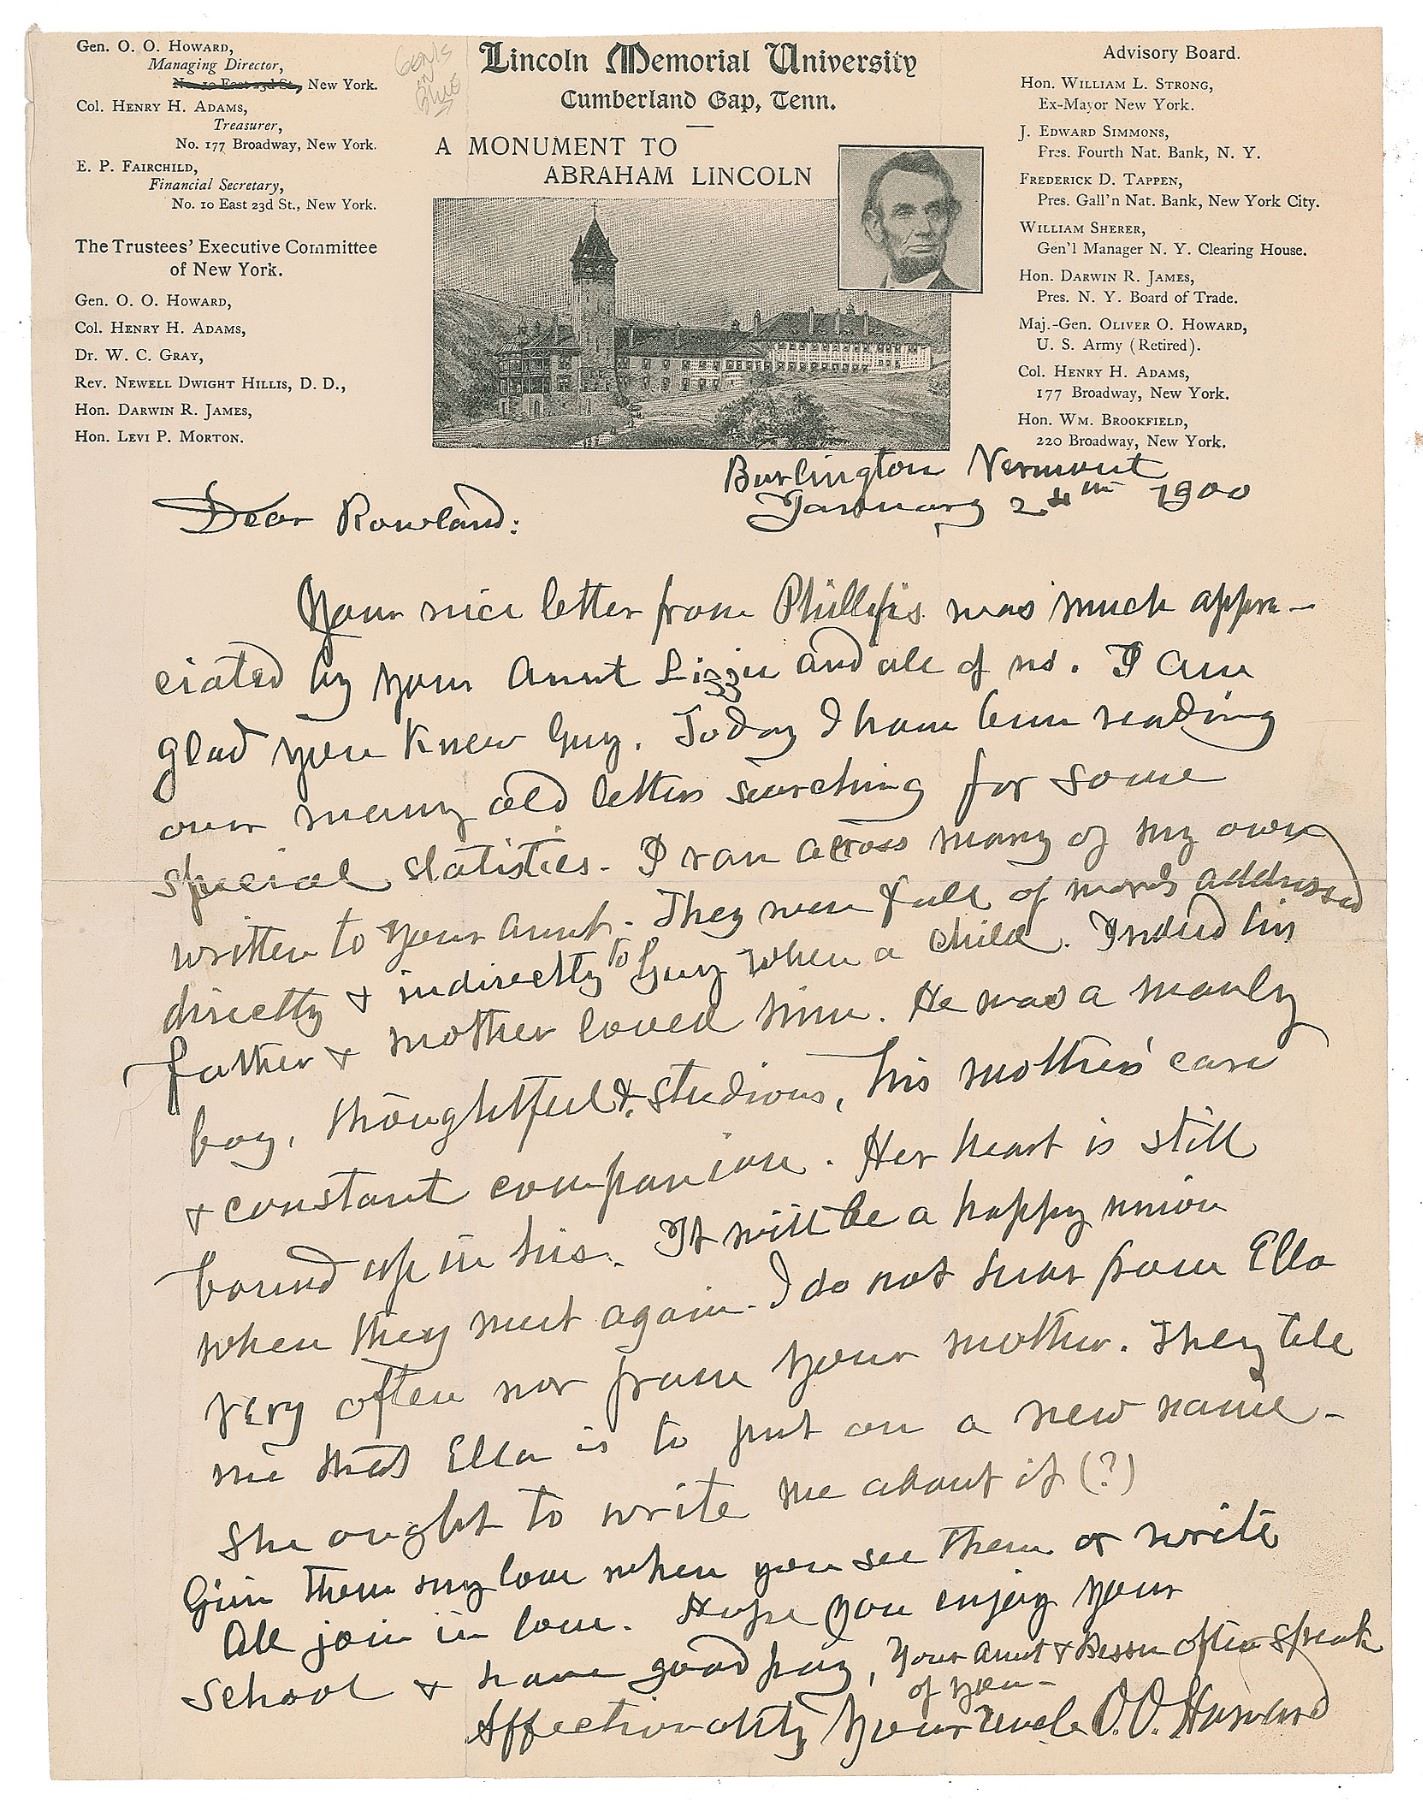 Gen. O. O. Howard,
Managing Director,
No. 10 East 23d St., New York.
Col. Henry H. Adams,
Treasurer,
No. 177 Broadway, New York.
E. P. Fairchild,
Financial Secretary,
No. 10 East 23d St., New York.
The Trustees' Executive Committee
of New York.
Gen. O. O. Howard,
Col. Henry H. Adams,
Dr. W. C. Gray,
Rev. Newell Dwight Hillis, D. D.,
Hon. Darwin R. James,
Hon. Levi P. Morton.
Lincoln Memorial University
Cumberland Gap, Tenn.
A MONUMENT TO
ABRAHAM LINCOLN
Advisory Board.
Hon. William L. Strong,
Ex-Mayor New York.
J. Edward Simmons,
Pres. Fourth Nat. Bank, N. Y.
Frederick D. Tappen,
Pres. Gall'n Nat. Bank, New York City.
William Sherer,
Gen'l Manager N. Y. Clearing House.
Hon. Darwin R. James,
Pres. N. Y. Board of Trade.
Maj.-Gen. Oliver O. Howard,
U. S. Army (Retired).
Col. Henry H. Adams,
177 Broadway, New York.
Hon. Wm. Brookfield,
220 Broadway, New York.
Burlington Vermont
January 24th 1900
Dear Rowland:
Your nice letter from Phillips was much appre-
ciated by your Aunt Lizzie and all of us. I am
glad you knew Guy. Today I have been reading
over many old letters searching for some
special statistics. I ran across many of my own
written to your aunt. They were full of words addressed
directly & indirectly to Guy when a child. Indeed his
father & mother loved him. He was a manly
boy, thoughtful & studious, his mother's care
& constant companion. Her heart is still
bound up in his. It will be a happy union
when they meet again. I do not hear from Ella
very often nor from your mother. They tell
me that Ella is to put on a new name -
She ought to write me about it (?)
Give them my love when you see them or write
All join in love. Hope you enjoy your
school & have good pay, Your Aunt & Bessie often speak
of you -
Affectionately Your Uncle O. O. Howard